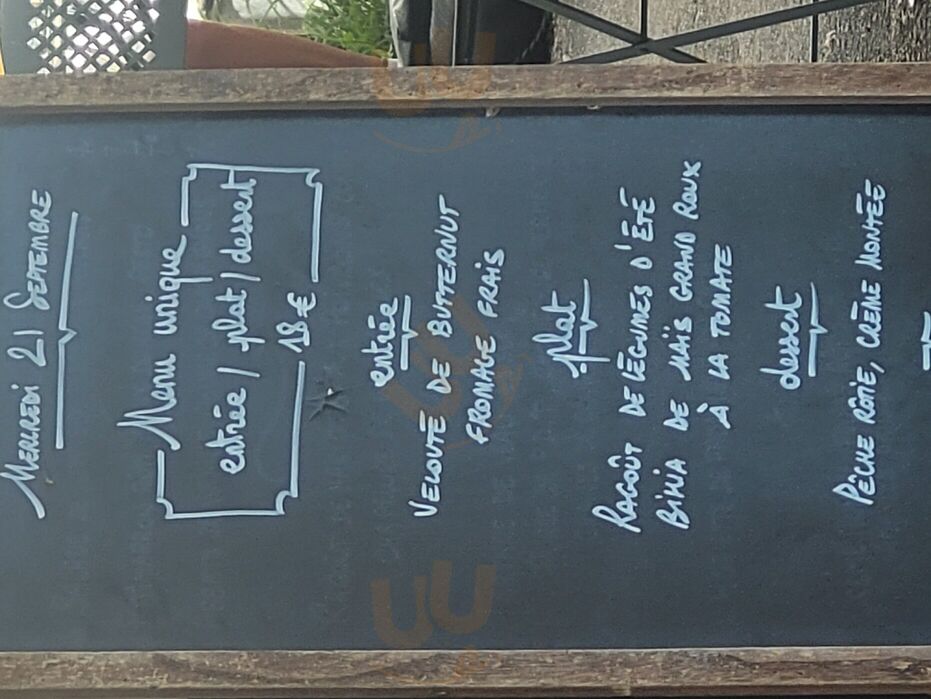 Mercredi 21 Septembre
Menu unique
entrée / plat / dessert
18€
entrée
VELOUTÉ DE BUTTERNUT
FROMAGE FRAIS
plat
RAGOÛT DE LÉGUMES D'ÉTÉ
DE MAÏS GRAND ROUX
À LA TOMATE
dessert
PÊCHE RÔTIE, CRÈME MONTÉE